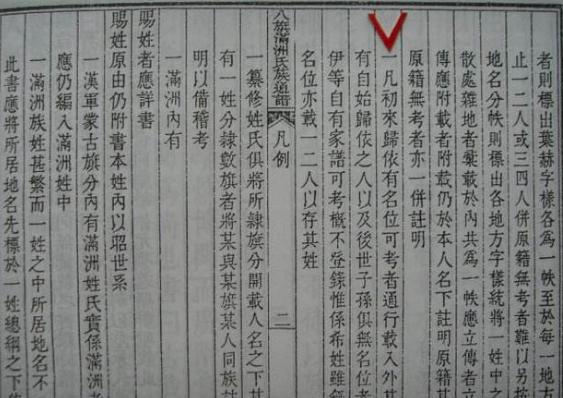 者則標出葉赫字樣各為一帙至於每一地
止一二人或三四人併原籍無考者難以另按
地名分帙則標出各地方字樣統將一姓中之
散處雜地者彙載於內共為一帙應立傳者立
傳應附載者附載仍於本人名下註明原籍其
原籍無考者亦一併註明
一凡初來歸依有名位可考者通行載入外其
有自始歸依之人以及後世子孫俱無名位者
伊等自有家譜可考概不登錄惟係布姓雖無
名位亦載一二人以存其姓
八旗滿洲氏族通譜 凡例 二
一纂修姓氏俱將所隸旗分開載人名之下其
有一姓分隸數旗者將某與某旗某人同族
明以備稽考
一滿洲內有
賜姓者應詳書
賜姓原由仍附書本姓內以昭世系
一漢軍蒙古旗分內有滿洲姓氏實係滿洲者
應仍編入滿洲姓中
一滿洲族姓甚繁而一姓之中所居地名不
此書應將所居地名先標於一姓總綱之下